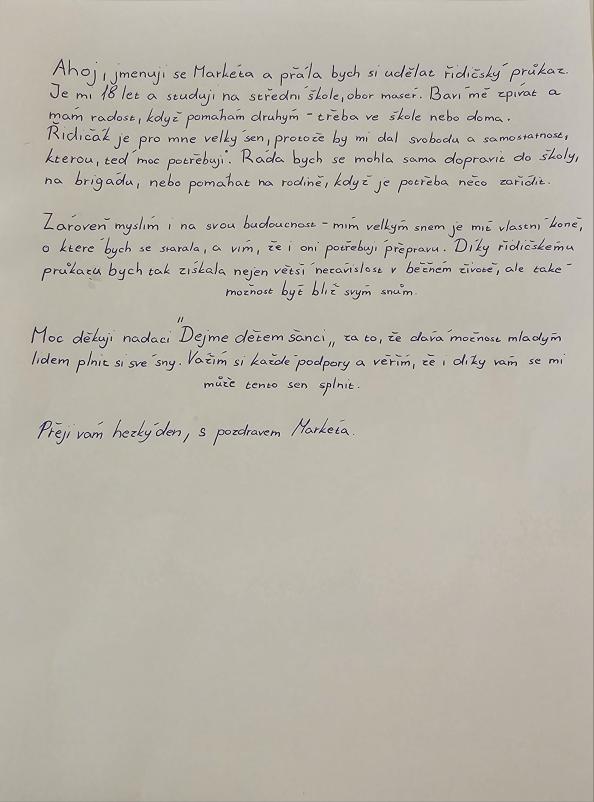 Ahoj, jmenuji se Markéta a přála bych si udělat řidičský průkaz.
Je mi 18 let a studuji na střední škole, obor masér. Baví mě zpívat a
mám radost, když pomáhám druhým - třeba ve škole nebo doma.
Řidičák je pro mne velký sen, protože by mi dal svobodu a samostatnost,
kterou, teď moc potřebuji. Ráda bych se mohla sama dopravit do školy,
na brigádu, nebo pomáhat na rodině, když je potřeba něco zařídit.
Zároveň myslím i na svou budoucnost - mím velkým snem je mít vlastní koně,
o které bych se starala, a vím, že i oni potřebují přepravu. Díky řidičskému
průkazu bych tak získala nejen větší nezávislost v běžném životě, ale také
možnost být blíž svým snům.
Moc děkuji nadaci "Dejme dětem šanci„ za to, že dává možnost mladým
lidem plnit si své sny. Vážím si každé podpory a věřím, že i díky vám se mi
může tento sen splnit.
Přeji vám hezký den, s pozdravem Markéta.